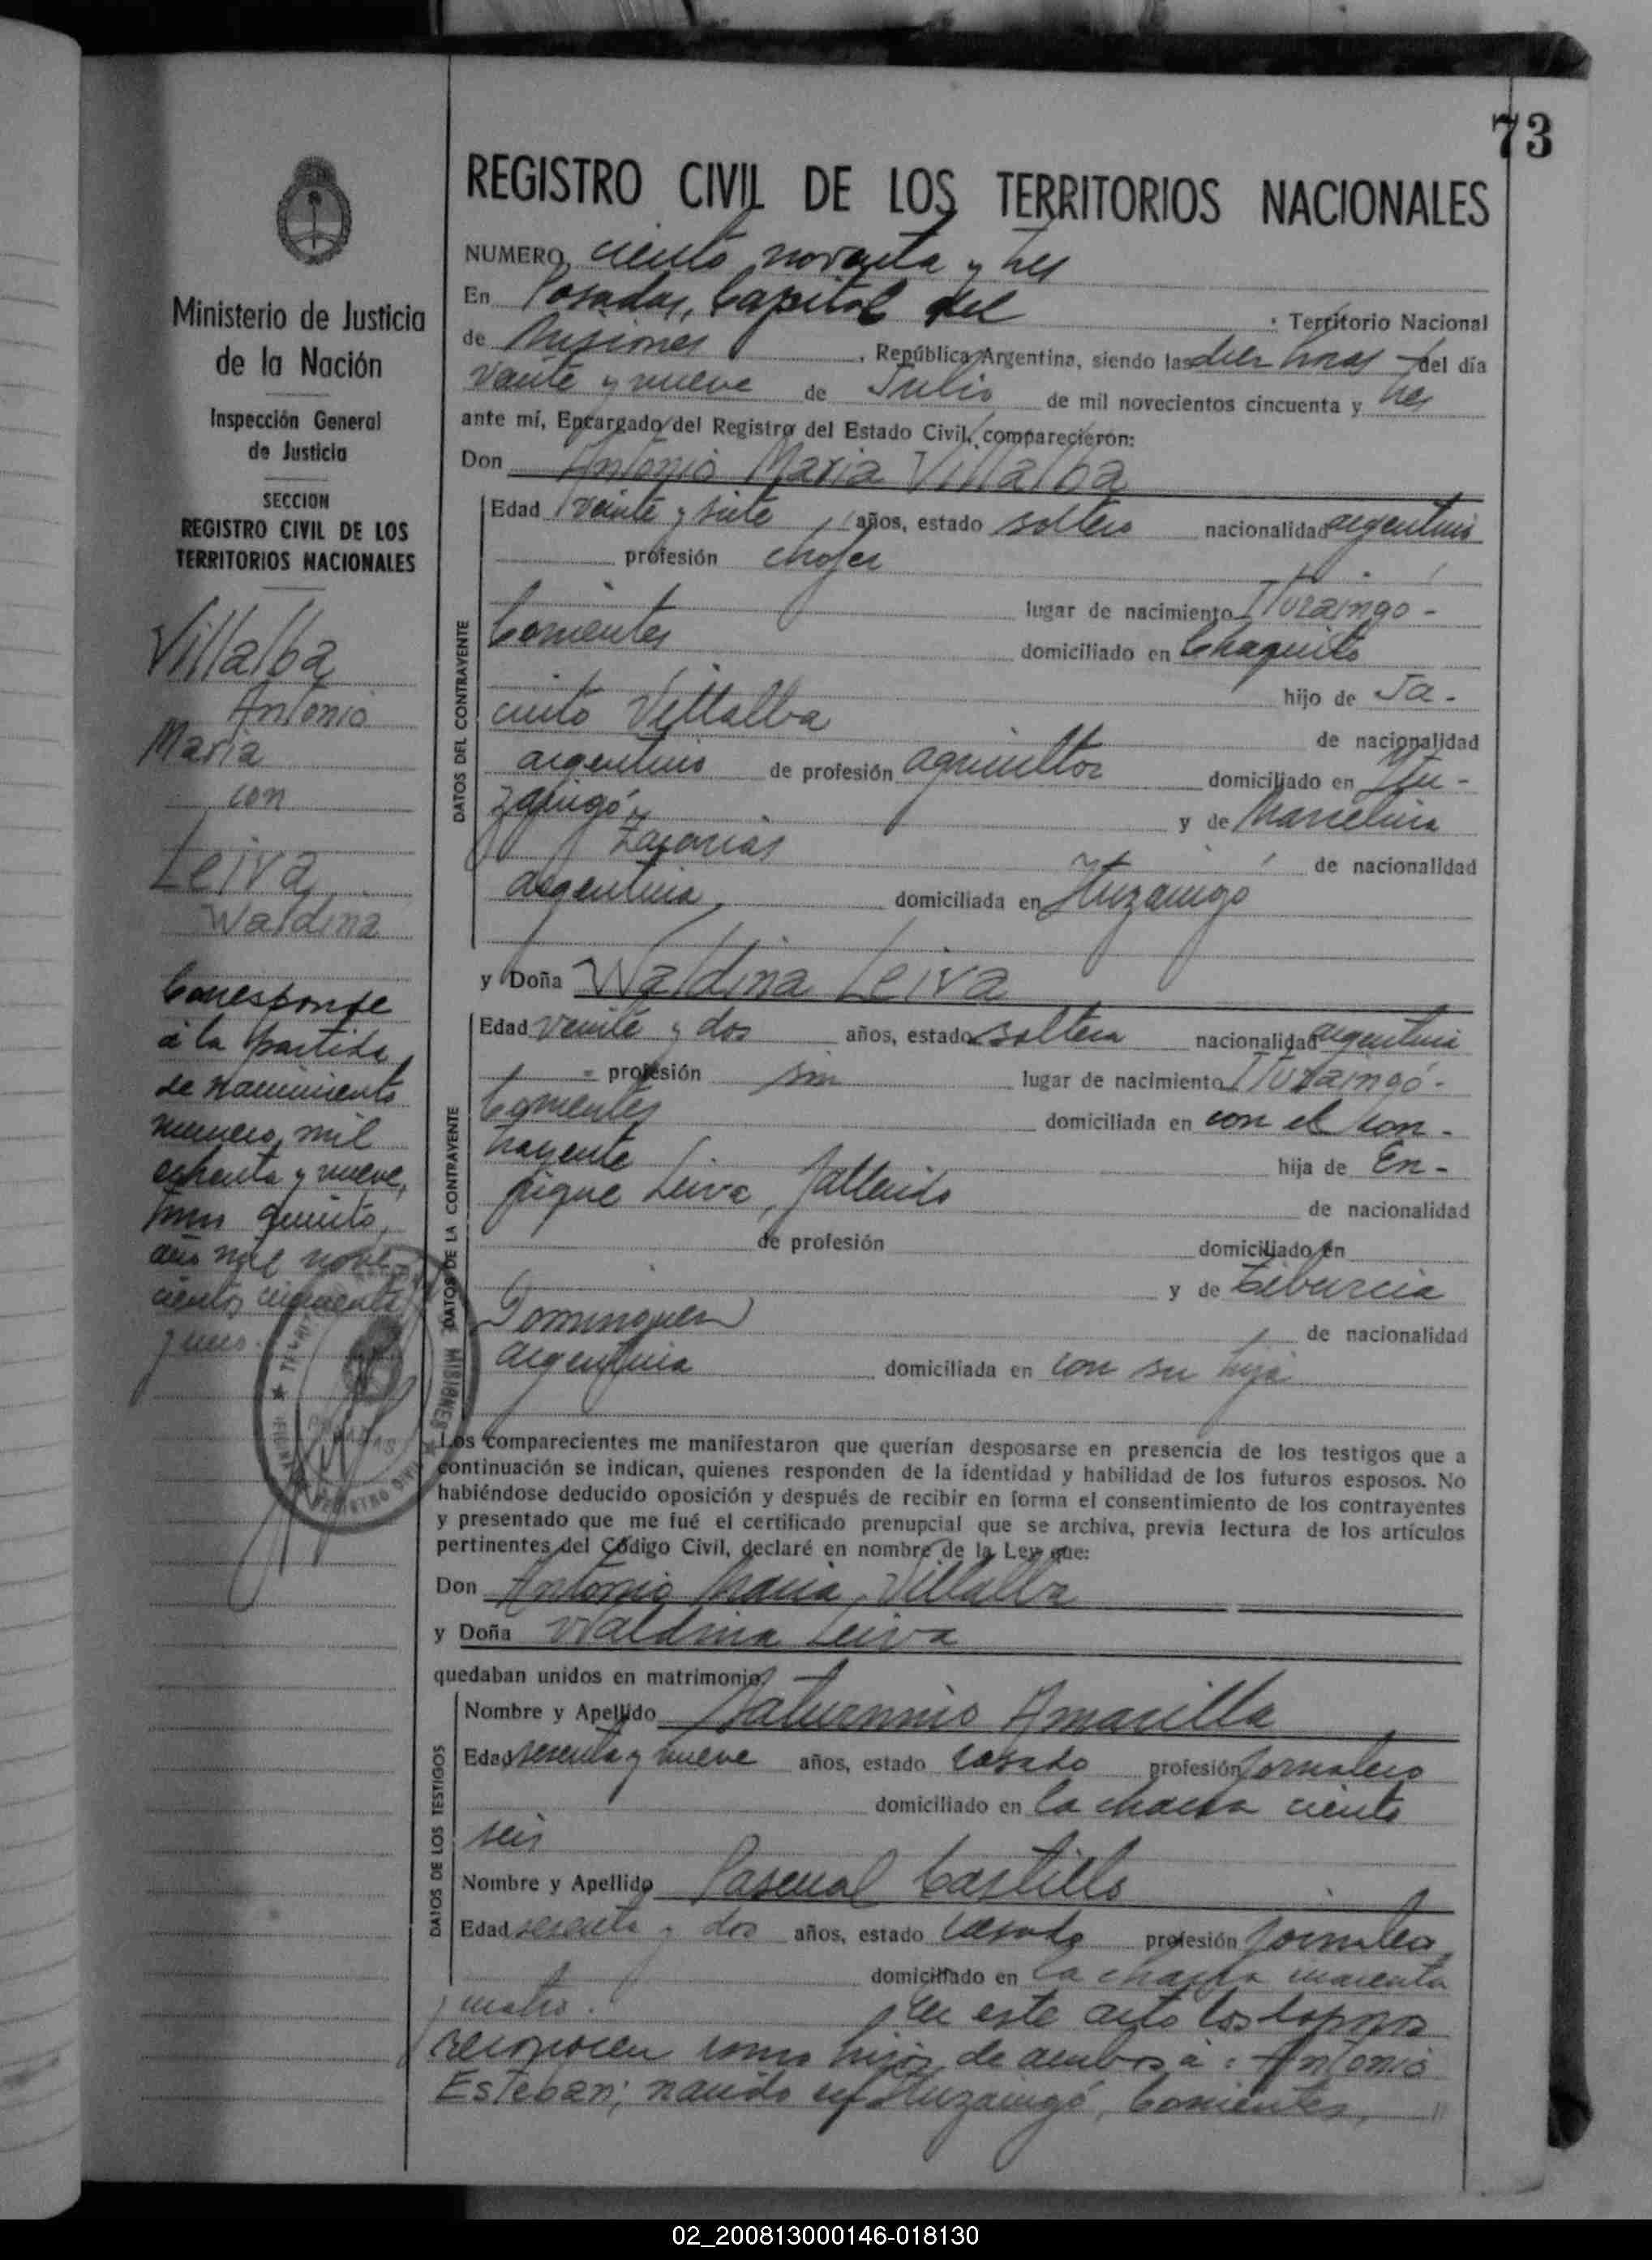 73
REGISTRO CIVIL DE LOS TERRITORIOS NACIONALES
NUMERO ciento noventa y tres
En Posadas, Capital del : Territorio Nacional
de Misiones , República Argentina, siendo las diez horas del día
veinte y nueve de Julio de mil novecientos cincuenta y tres
ante mí, Encargado del Registro del Estado Civil, comparecieron:
Don Antonio Maria Villalba
DATOS DEL CONTRAYENTE
Edad veinte y siete años, estado soltero nacionalidad argentino
profesión chofer
lugar de nacimiento Ituzaingo -
Corrientes domiciliado en Chaquito
hijo de Ja-
cinto Villalba de nacionalidad
argentino de profesión agricultor domiciliado en Itu-
zaingó, y de Marcelina
Zacarias de nacionalidad
argentina, domiciliada en Ituzaingó
y Doña Waldina Leiva
DATOS DE LA CONTRAYENTE
Edad veinte y dos años, estado soltera nacionalidad argentina
profesión sin lugar de nacimiento Ituzaingó -
Corrientes domiciliada en con el con-
trayente hija de En-
rique Leiva, fallecido de nacionalidad
de profesión domiciliado en
y de Tiburcia
Dominguez de nacionalidad
argentina domiciliada en con su hija
Los comparecientes me manifestaron que querían desposarse en presencia de los testigos que a
continuación se indican, quienes responden de la identidad y habilidad de los futuros esposos. No
habiéndose deducido oposición y después de recibir en forma el consentimiento de los contrayentes
y presentado que me fué el certificado prenupcial que se archiva, previa lectura de los artículos
pertinentes del Código Civil, declaré en nombre de la Ley que:
Don Antonio Maria Villalba
y Doña Waldina Leiva
quedaban unidos en matrimonio
DATOS DE LOS TESTIGOS
Nombre y Apellido Saturnino Amarilla
Edad sesenta y nueve años, estado casado profesión jornalero
domiciliado en la chacra ciento
seis
Nombre y Apellido Pascual Castillo
Edad sesenta y dos años, estado casado profesión jornalero
domiciliado en la chacra cuarenta
y cuatro. En este acto los esposos
reconocen como hijos de ambos a: Antonio
Esteban; nacido en Ituzaingó, Corrientes, "
Ministerio de Justicia
de la Nación
Inspección General
de Justicia
SECCION
REGISTRO CIVIL DE LOS
TERRITORIOS NACIONALES
Villalba
Antonio
Maria
con
Leiva
Waldina
Corresponde
a la partida
de nacimiento
numero mil
ochenta y nueve,
tomo quinto,
año mil nove-
cientos cincuenta
y uno.
MISIONES
POSADAS
REGISTRO CIVIL
02_200813000146-018130